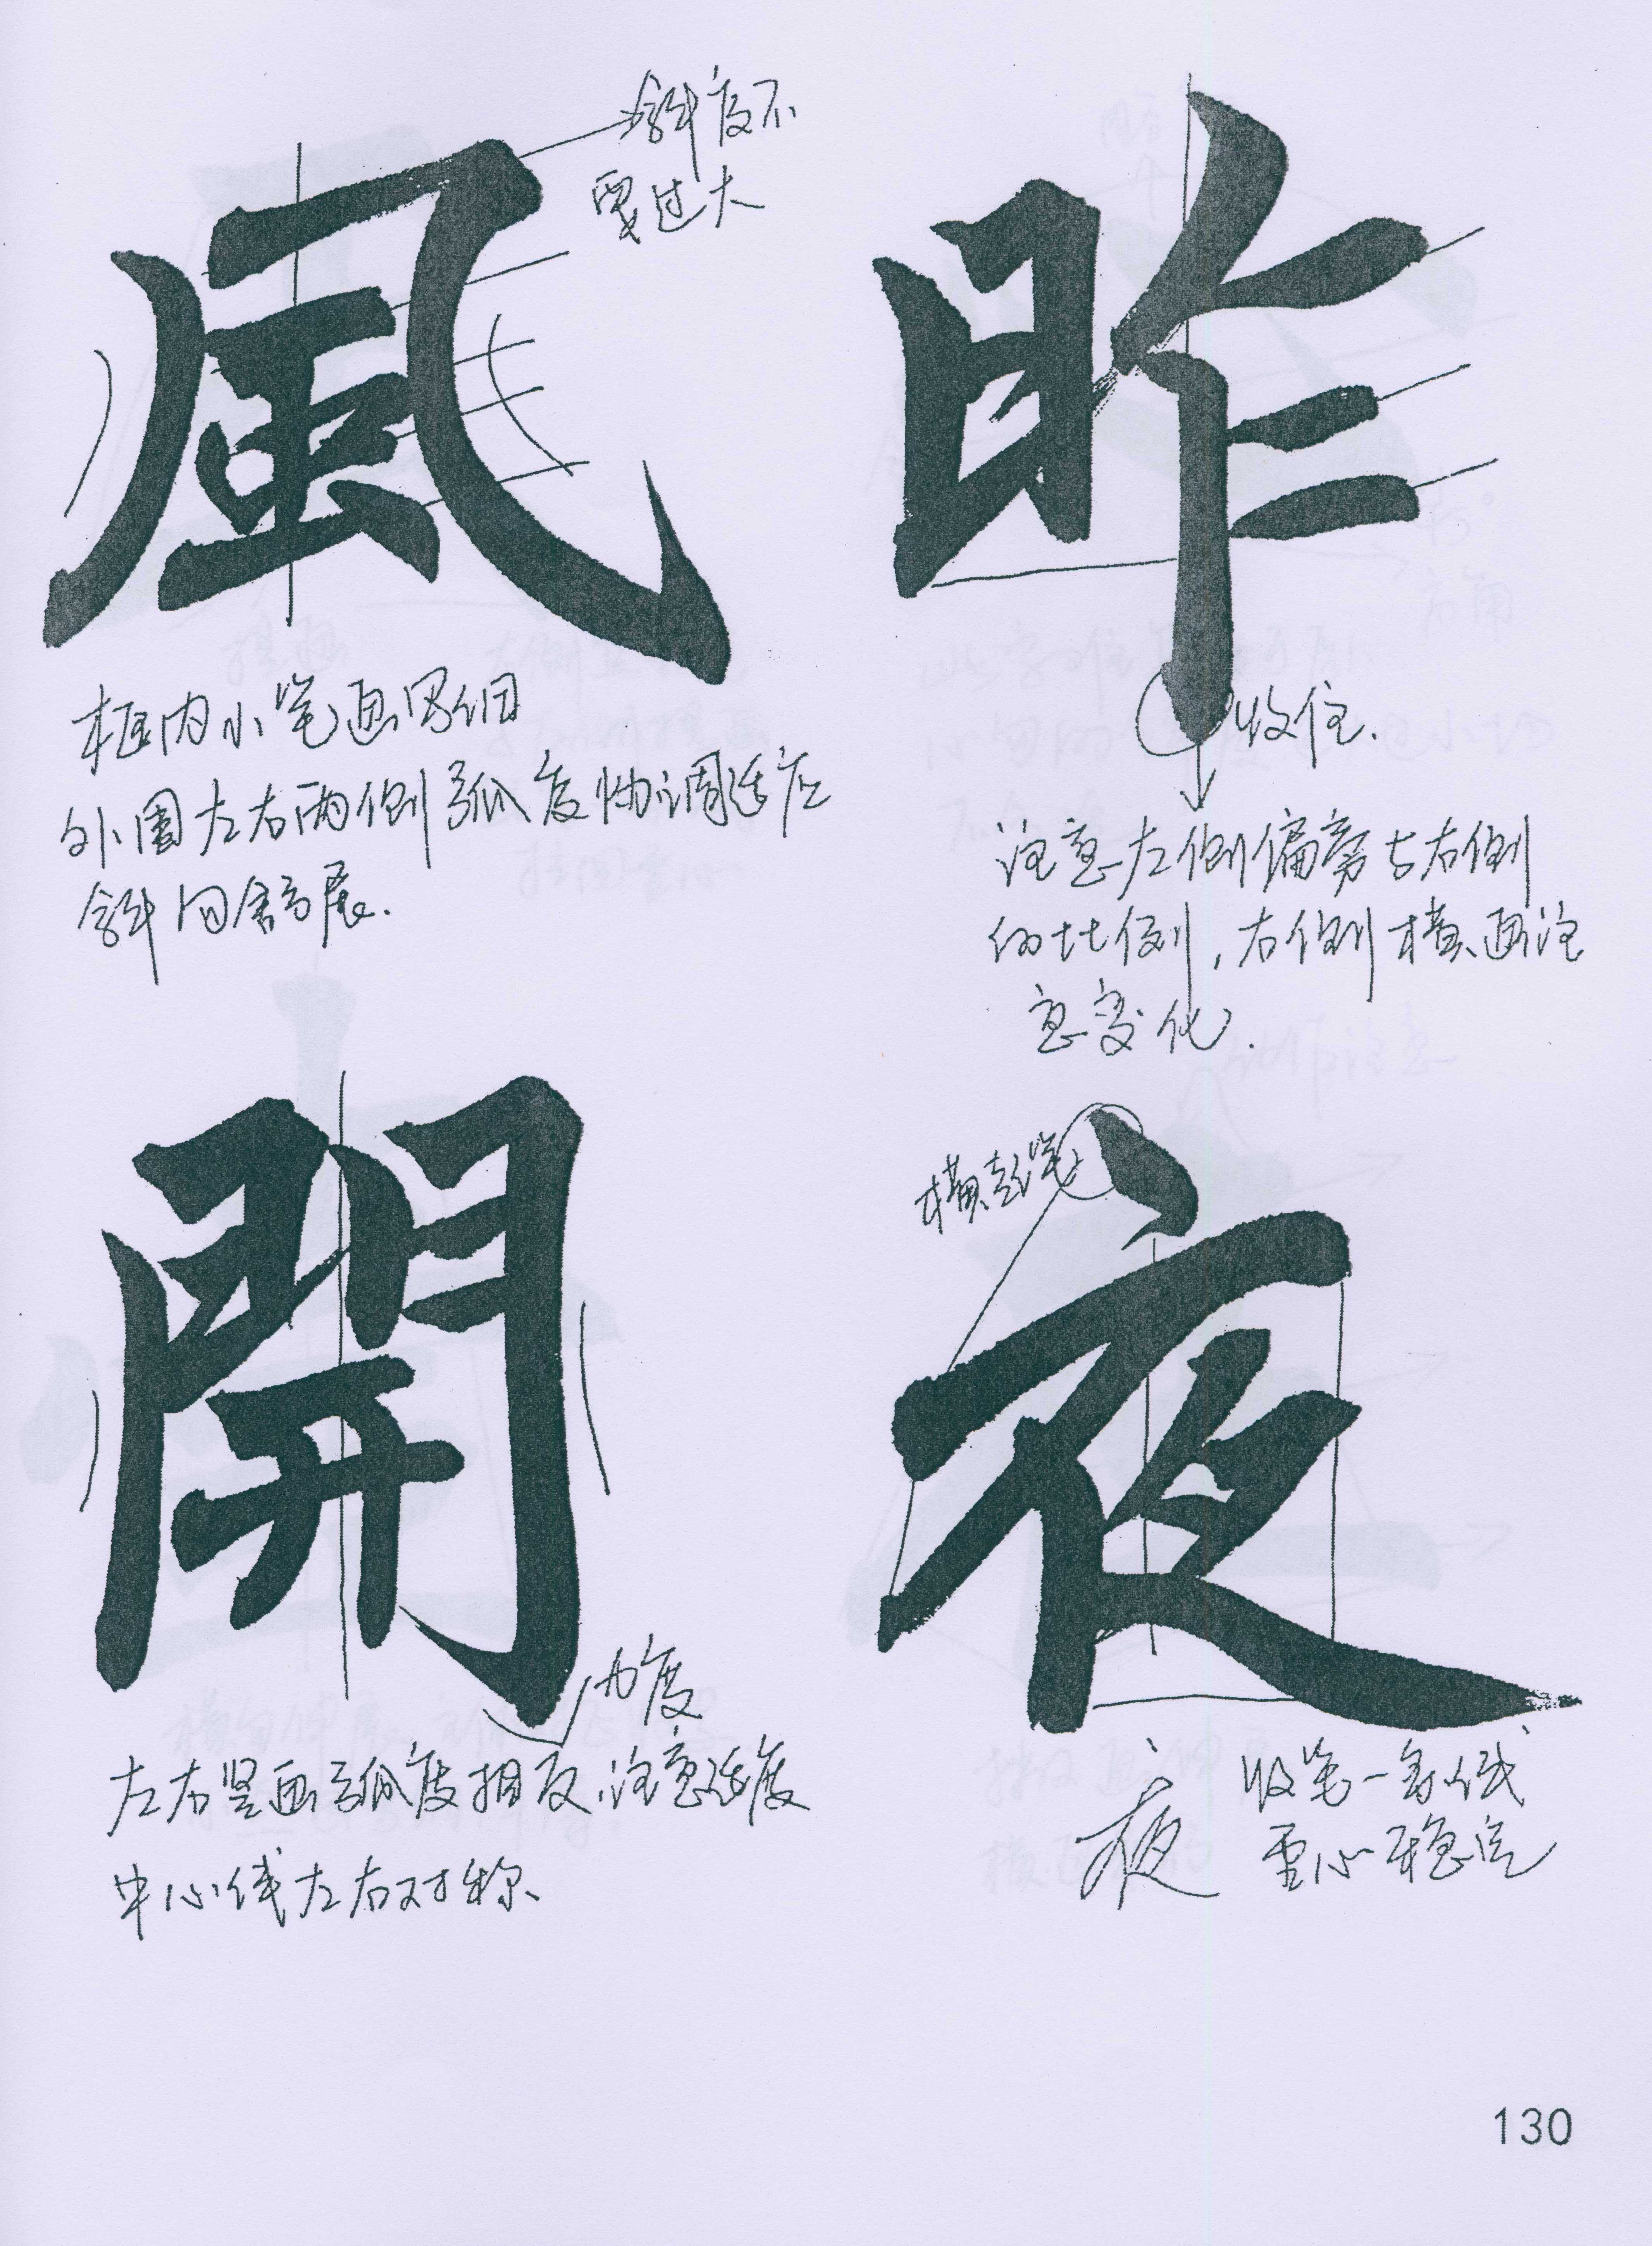 風
斜度不
要过大
框内小笔画略细
外围左右两侧弧度协调适应
斜勾舒展.
昨
收住.
注意左侧偏旁与右侧
的比例,右侧横画注
意变化.
開
力度
左右竖画弧度相反,注意适度
中心线左右对称、
夜
横起笔
夜
收笔一条线
重心稳定
130